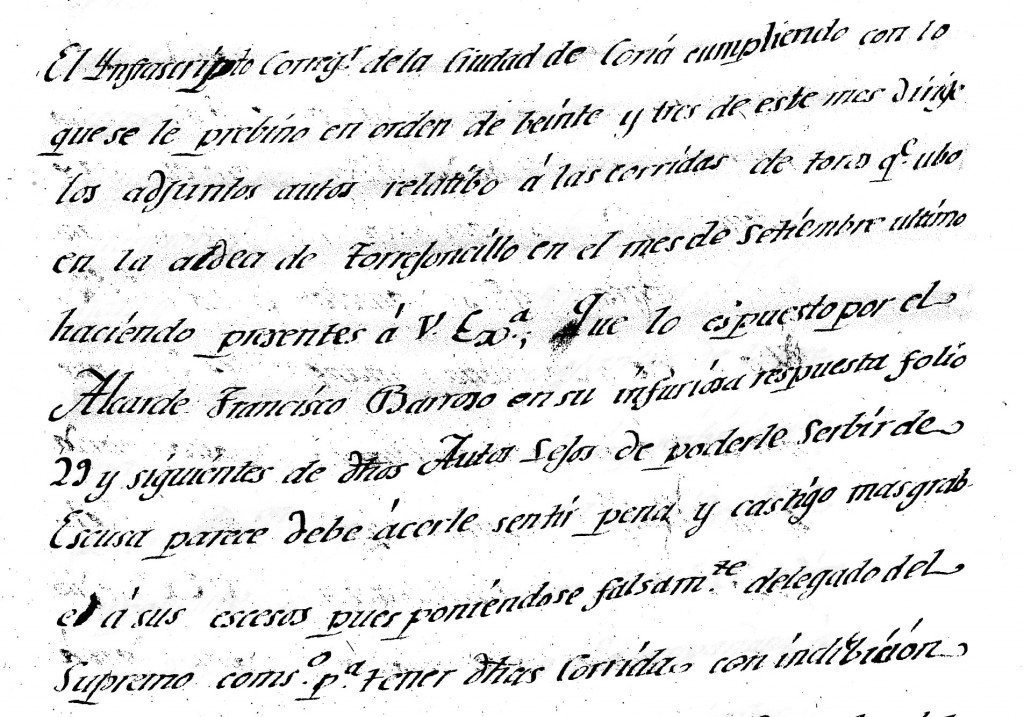 El Ynfrascripto Correg.r de la Ciudad de Coria cumpliendo con lo
que se le prebino en orden de beinte y tres de este mes dirije
los adjuntos autos relatibo á las corridas de toros q.e ubo
en la aldea de Torrejoncillo en el mes de Setiembre ultimo
haciendo presentes á V. Exa.; Que lo espuesto por el
Alcarde Francisco Barroso en su injuriosa respuesta folio
29 y siguientes de dhos Autos Lejos de poderle Serbir de
Escusa parece debe ácerle sentir pena y castigo mas grab
e á sus escesos pues poniéndose falsam.te delegado del
Supremo coms.o p.a tener dhas Corridas con indibición